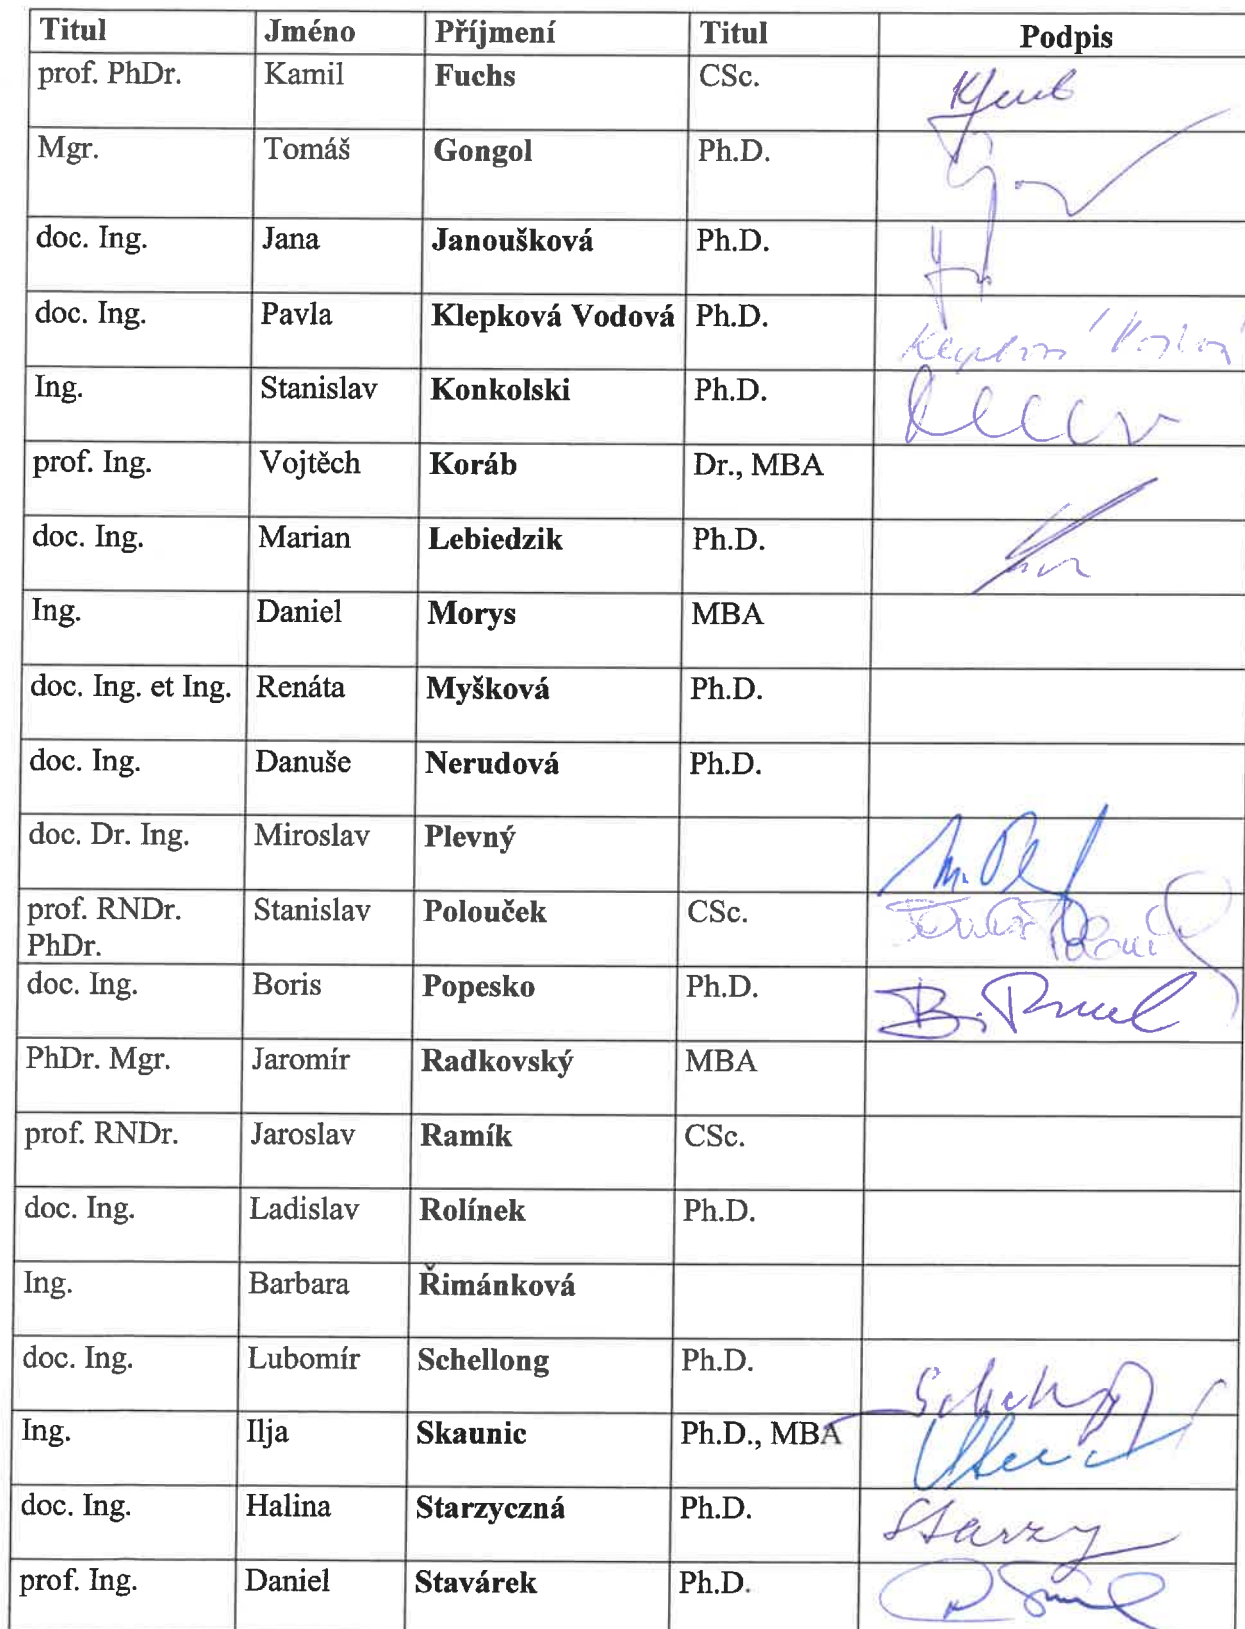 Titul Jméno Příjmení Titul Podpis
prof. PhDr. Kamil Fuchs CSc.
Mgr. Tomáš Gongol Ph.D.
doc. Ing. Jana Janoušková Ph.D.
doc. Ing. Pavla Klepková Vodová Ph.D.
Ing. Stanislav Konkolski Ph.D.
prof. Ing. Vojtěch Koráb Dr., MBA
doc. Ing. Marian Lebiedzik Ph.D.
Ing. Daniel Morys MBA
doc. Ing. et Ing. Renáta Myšková Ph.D.
doc. Ing. Danuše Nerudová Ph.D.
doc. Dr. Ing. Miroslav Plevný
prof. RNDr. Stanislav Polouček CSc.
PhDr.
doc. Ing. Boris Popesko Ph.D.
PhDr. Mgr. Jaromír Radkovský MBA
prof. RNDr. Jaroslav Ramík CSc.
doc. Ing. Ladislav Rolínek Ph.D.
Ing. Barbara Řimánková
doc. Ing. Lubomír Schellong Ph.D.
Ing. Ilja Skaunic Ph.D., MBA
doc. Ing. Halina Starzyczná Ph.D. Starzy
prof. Ing. Daniel Stavárek Ph.D.